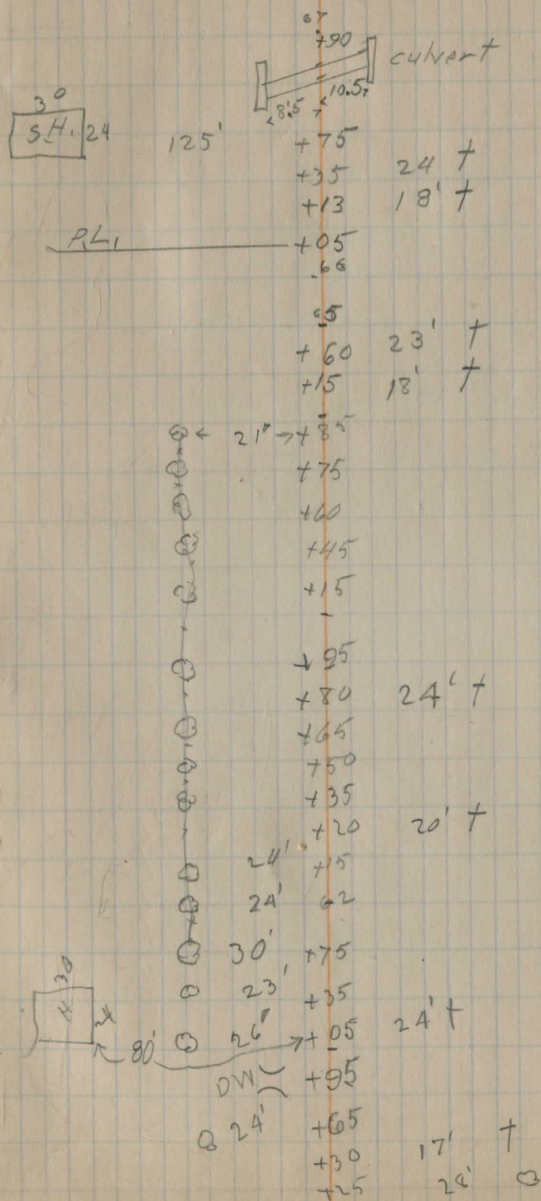 67
+90 culvert
8.5 10.5
30
S.H. 24 125' +75
+35 24 †
+13 18' †
P.L. +05
66
65
+60 23' †
+15 18' †
21" +85
+75
+60
+45
+15
+95
+80 24' †
+65
+50
+35
+20 20' †
24' +15
24' 62
30' +75
30 23' +35
H 24
80' 26" +05 24' †
DW +95
24' +65
+30 17' †
+25